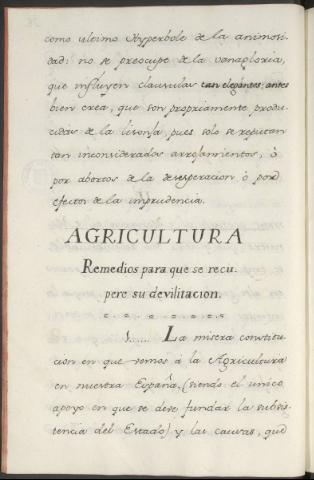 como ultimo Hyperbole de la animosi-
dad: no se preocupe de la vanagloria,
que influyen clausulas tan elegantes, antes
bien crea, que son propriamente produ-
cidas de la lisonja, pues solo se reputan
tan inconsiderados arrojamientos, ò
por abortos de la desesperacion ò por
efectos de la imprudencia.
AGRICULTURA
Remedios para que se recu-
pere su devilitacion.
1...... La misera constitu-
cion en que vemos à la Agricultura
en nuestra España, (siendo el unico
apoyo en que se deve fundar la subsis-
tencia del Estado) y las causas, que